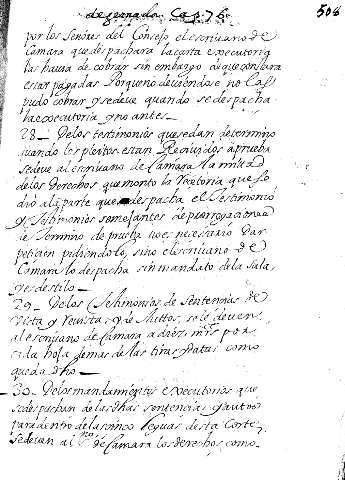 de granada Cap. 76. 508
por los señores del Consejo el escriuano de
Camara que despachara la carta executoria
las hauia de cobrar sin embargo de que constara
estar pagadas Porque no deuiendose no las
pudo cobrar y se deue quando se despacha
la executoria y no antes.
28_ De los testimonios que se dan de termino
quando los pleytos estan Reciuidos a prueba
se deue al escriuano de Camara la mitad
de los derechos que monto la Receptoria que se
dio a la parte que despacha el Testimonio
y Testimonios semejantes de prorrogaciones
de termino de prueba no es necesario dar
peticion pidiendolo, sino el escriuano de
Camara lo despacha sin mandato de la Sala,
y es destilo_
29_ De los Testimonios de Sentencias de
vista y Reuista, y de Auttos, se le deuen
al escriuano de Camara a diez mrs por
cada hoja demas de las tiras y vistas como
queda dho_
30_ De los mandamientos executorios que
se despachan de las dhas sentencias y autos
para dentro de las cinco leguas desta Corte,
se deuen al sno de Camara los derechos como